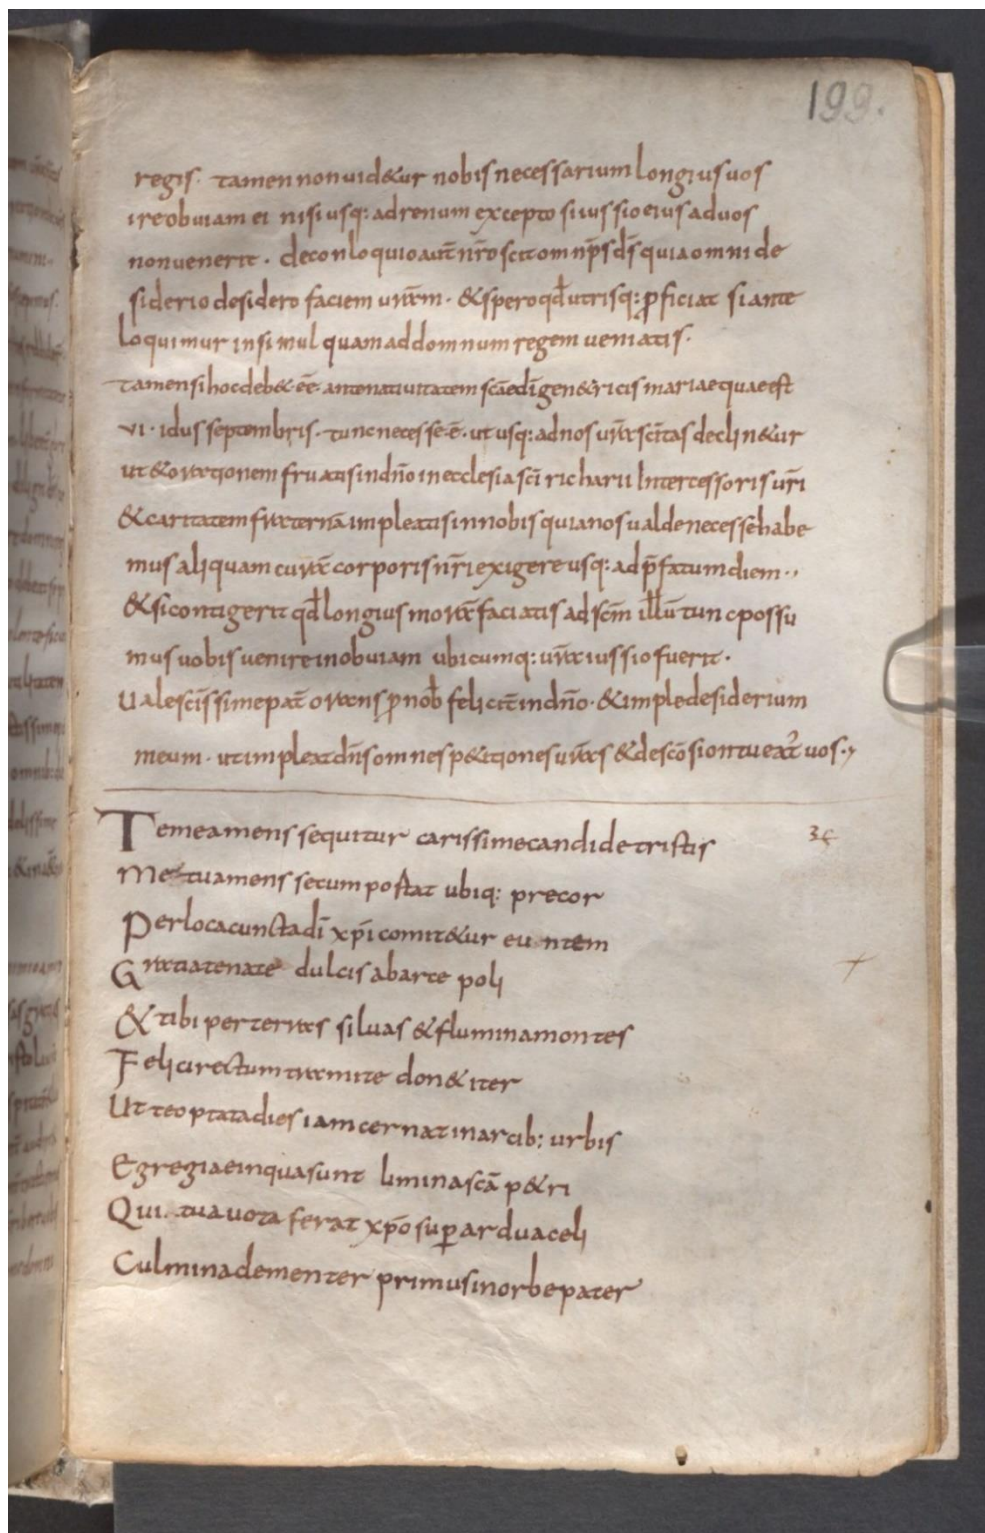 199.
regis. tamen non uid&ur nobis necessarium longius uos
ire obuiam ei nisi usq: ad renum excepto si iussio eius ad uos
non uenerit. de conloquio aut̄ nr̄o scit omnp̄s d̄s quia omni de
siderio desidero faciem ur̄am. & spero qđ utrisq: ꝓficiat si ante
loquimur insimul quam ad domnum regem ueniatis.
tamen si hoc deb& ee͞. ante natiuitatem scāe dī gen&ricis mariae quae est
VI. idus septembris. tunc necesse. ē. ut usq: ad nos ur̄a scītas declin&ur
ut & orationem fruatis in dn̄o in ecclesia scī richarii Intercessoris ur̄i
& caritatem fraternā impleatis in nobis quia nos ualde necesse habe
mus aliquam curā corporis nr̄i exigere usq: ad p̄fatum diem.,
& si contigerit qđ longius morā faciatis ad scm̄ illū tunc possu
mus uobis uenire in obuiam ubicumq: ur̄a iussio fuerit.
Uale scīssime pat̄ orans ꝓ nob̄ felicit̄ in dn̄o. & imple desiderium
meum. ut impleat dn̄s omnes p&itiones ur̄as & de scō sion tueat̉ uos.,
Te mea mens sequitur carissime candide tristis
3c
Me tua mens secum postat ubiq: precor
Per loca cuncta dī xp̄i comit&ur euntem
Gratia te nate dulcis ab arce poli
& tibi per terras siluas & flumina montes
Felici rectum tramite don& iter
Ut te optata dies iam cernat in arcib: urbis
Egregiae in qua sunt limina scā p&ri
Qui. tua uota ferat xp̄o suꝑ ardua celi
Culmina clementer primus in orbe pater